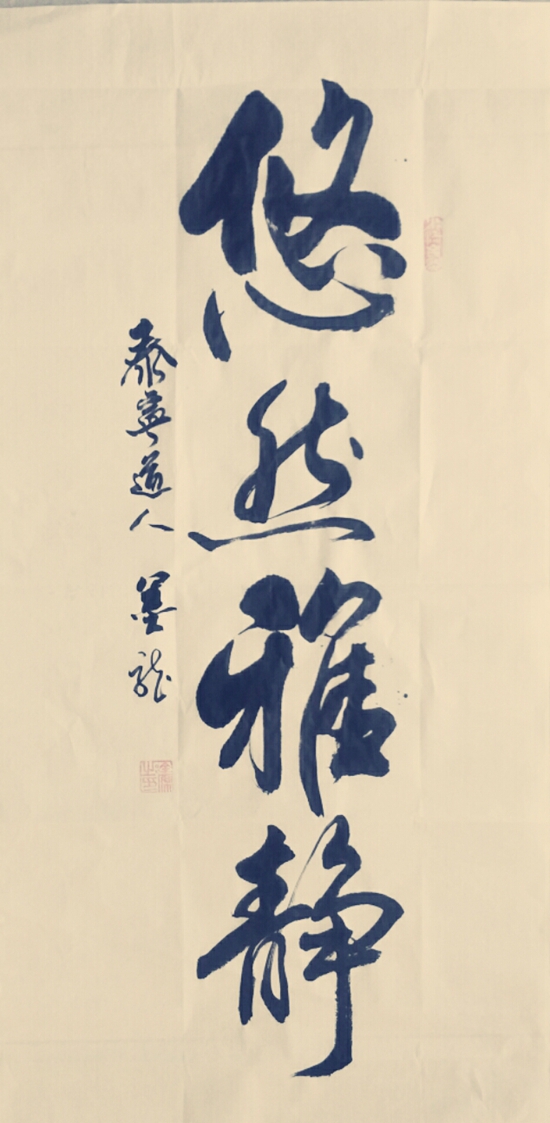 悠然雅静
泰寿道人 墨龙